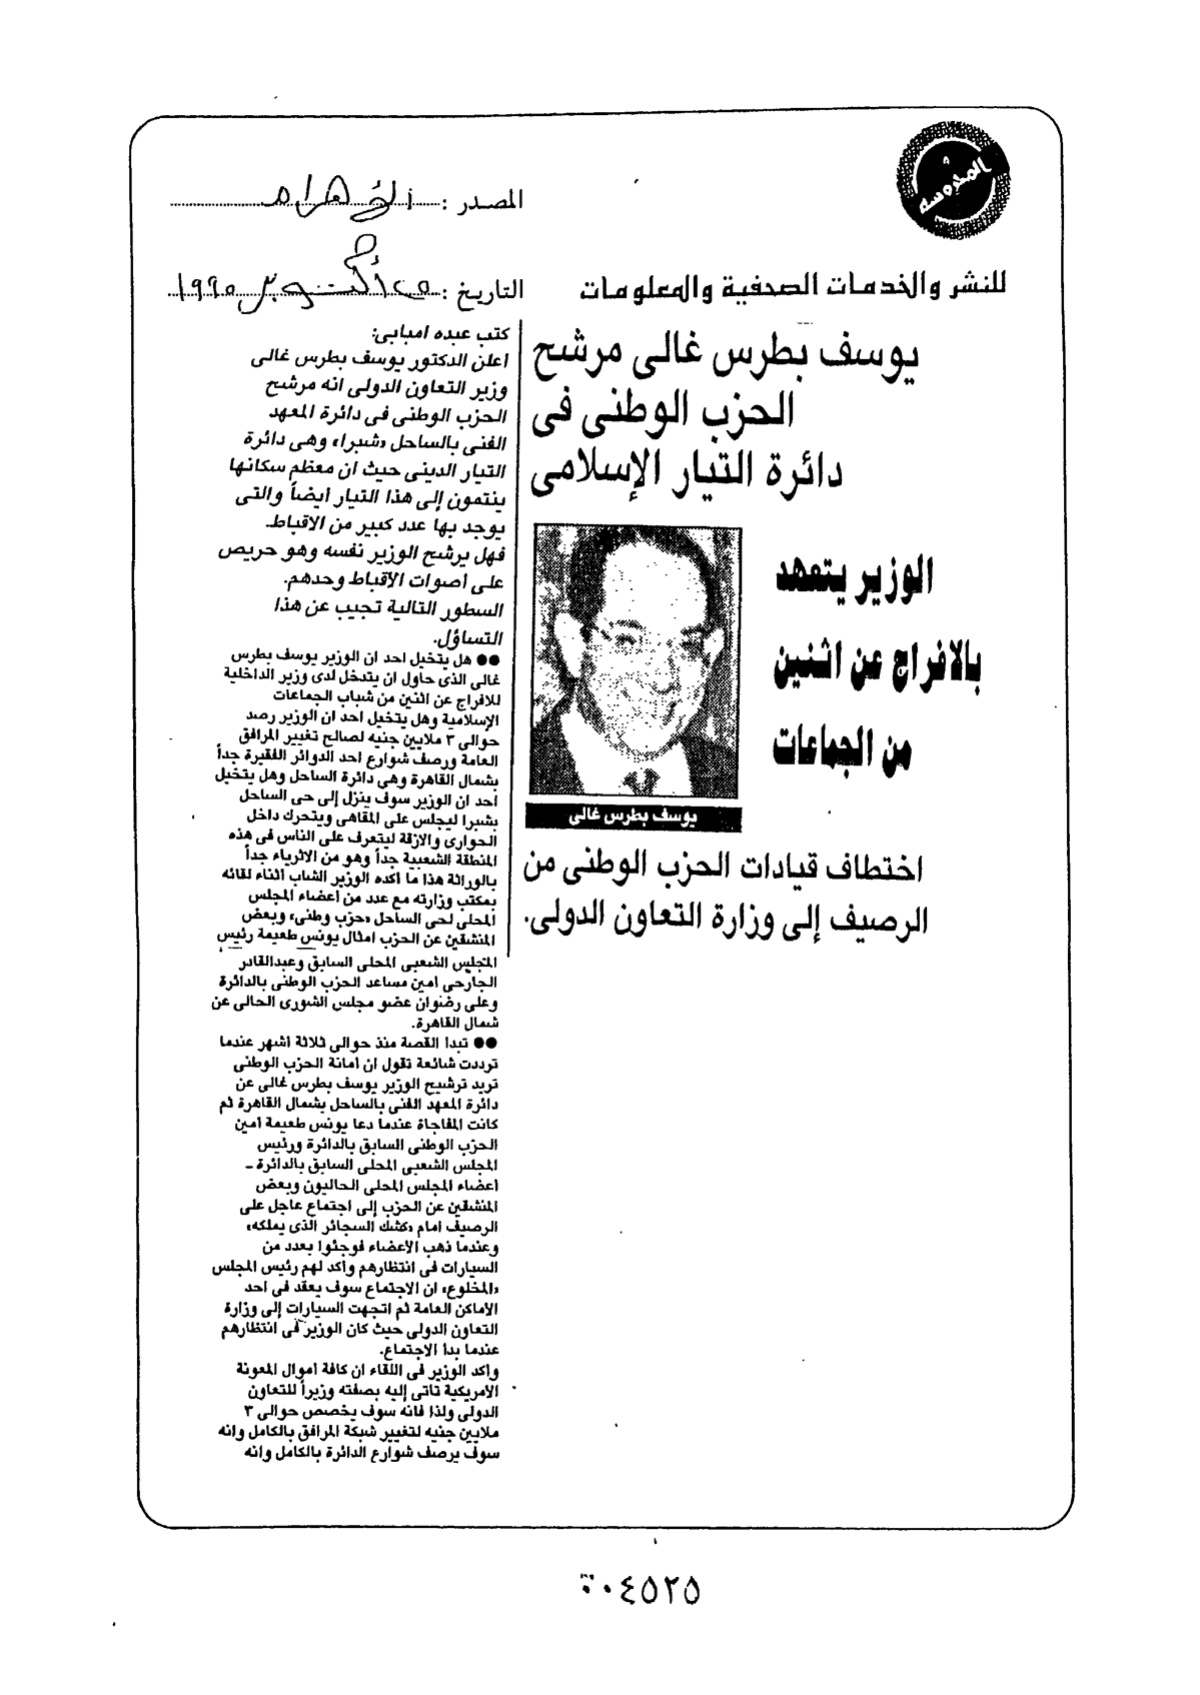 المحروسة
المصدر : الأهرام
للنشر والخدمات الصحفية والمعلومات
التاريخ : ٢٥ أكتوبر ١٩٩٥
يوسف بطرس غالى مرشح
الحزب الوطنى فى
دائرة التيار الإسلامى
الوزير يتعهد
بالافراج عن اثنين
من الجماعات
يوسف بطرس غالى
اختطاف قيادات الحزب الوطنى من
الرصيف إلى وزارة التعاون الدولى.
كتب عبده امبابى:
اعلن الدكتور يوسف بطرس غالى
وزير التعاون الدولى انه مرشح
الحزب الوطنى فى دائرة المعهد
الفنى بالساحل «شبرا» وهى دائرة
التيار الدينى حيث ان معظم سكانها
ينتمون إلى هذا التيار ايضاً والتى
يوجد بها عدد كبير من الاقباط.
فهل يرشح الوزير نفسه وهو حريص
على اصوات الاقباط وحدهم.
السطور التالية تجيب عن هذا
التساؤل.
●● هل يتخيل احد ان الوزير يوسف بطرس
غالى الذى حاول ان يتدخل لدى وزير الداخلية
للافراج عن اثنين من شباب الجماعات
الإسلامية وهل يتخيل احد ان الوزير رصد
حوالى ٣ ملايين جنيه لصالح تغيير المرافق
العامة ورصف شوارع احد الدوائر الفقيرة جداً
بشمال القاهرة وهى دائرة الساحل وهل يتخيل
احد ان الوزير سوف ينزل إلى حى الساحل
بشبرا ليجلس على المقاهى ويتحرك داخل
الحوارى والازقة ليتعرف على الناس فى هذه
المنطقة الشعبية جداً وهو من الاثرياء جداً
بالوراثة هذا ما اكده الوزير الشاب اثناء لقائه
بمكتب وزارته مع عدد من اعضاء المجلس
المحلى لحى الساحل «حزب وطنى» وبعض
المنشقين عن الحزب امثال يونس طعيمة رئيس
المجلس الشعبى المحلى السابق وعبدالقادر
الجارحى امين مساعد الحزب الوطنى بالدائرة
وعلى رضوان عضو مجلس الشورى الحالى عن
شمال القاهرة.
●● تبدا القصة منذ حوالى ثلاثة اشهر عندما
ترددت شائعة تقول ان امانة الحزب الوطنى
تريد ترشيح الوزير يوسف بطرس غالى عن
دائرة المعهد الفنى بالساحل بشمال القاهرة ثم
كانت المفاجاة عندما دعا يونس طعيمة امين
الحزب الوطنى السابق بالدائرة ورئيس
المجلس الشعبى المحلى السابق بالدائرة ـ
اعضاء المجلس المحلى الحاليون وبعض
المنشقين عن الحزب إلى اجتماع عاجل على
الرصيف امام «كشك السجائر الذى يملكه»
وعندما ذهب الاعضاء فوجئوا بعدد من
السيارات فى انتظارهم واكد لهم رئيس المجلس
«المخلوع» ان الاجتماع سوف يعقد فى احد
الاماكن العامة ثم اتجهت السيارات إلى وزارة
التعاون الدولى حيث كان الوزير فى انتظارهم
عندما بدا الاجتماع.
واكد الوزير فى اللقاء ان كافة اموال المعونة
الامريكية تاتى إليه بصفته وزيراً للتعاون
الدولى ولذا فانه سوف يخصص حوالى ٣
ملايين جنيه لتغيير شبكة المرافق بالكامل وانه
سوف يرصف شوارع الدائرة بالكامل وانه
٠٤٥٢٥